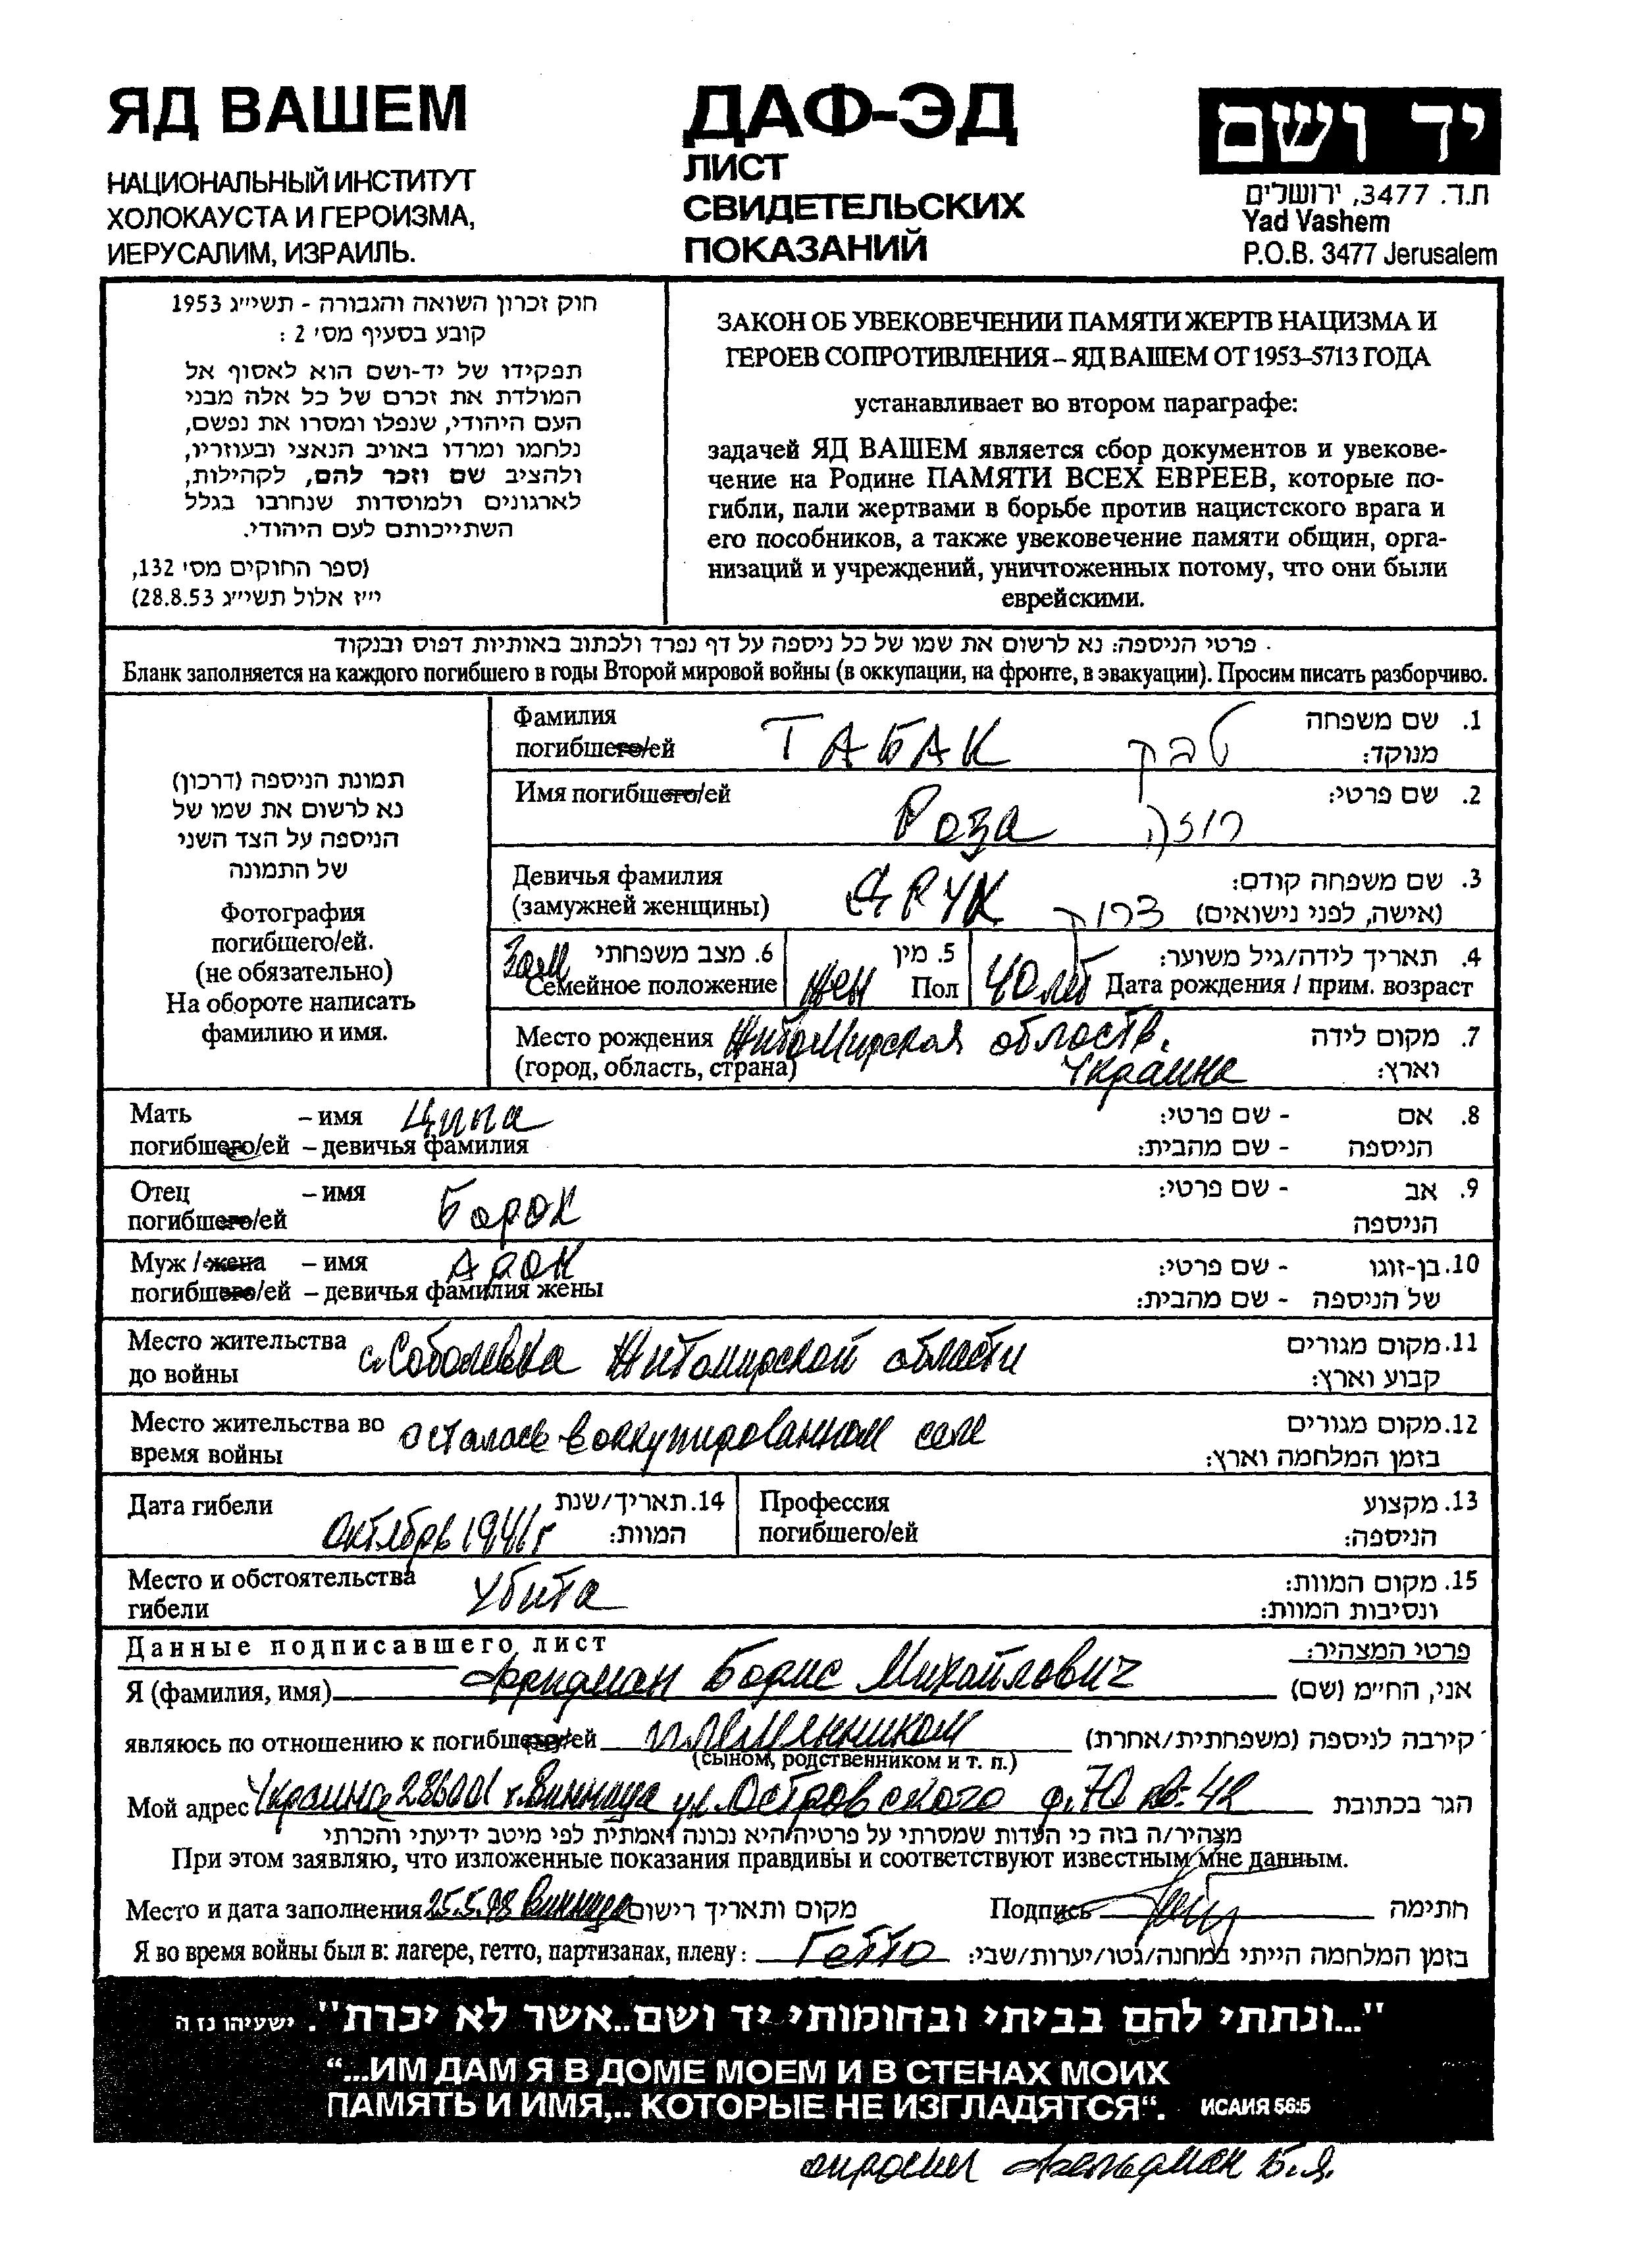 ЯД ВАШЕМ
НАЦИОНАЛЬНЫЙ ИНСТИТУТ
ХОЛОКАУСТА И ГЕРОИЗМА,
ИЕРУСАЛИМ, ИЗРАИЛЬ.
ДАФ-ЭД
ЛИСТ
СВИДЕТЕЛЬСКИХ
ПОКАЗАНИЙ
יד ושם
ת.ד. 3477, ירושלים
Yad Vashem
P.O.B. 3477 Jerusalem
חוק זכרון השואה והגבורה - תשי״ג 1953
קובע בסעיף מס׳ 2 :
תפקידו של יד-ושם הוא לאסוף אל
המולדת את זכרם של כל אלה מבני
העם היהודי, שנפלו ומסרו את נפשם,
נלחמו ומרדו באויב הנאצי ובעוזריו,
ולהציב שם וזכר להם, לקהילות,
לארגונים ולמוסדות שנחרבו בגלל
השתייכותם לעם היהודי.
(ספר החוקים מס׳ 132,
י״ז אלול תשי״ג 28.8.53)
ЗАКОН ОБ УВЕКОВЕЧЕНИИ ПАМЯТИ ЖЕРТВ НАЦИЗМА И
ГЕРОЕВ СОПРОТИВЛЕНИЯ – ЯД ВАШЕМ ОТ 1953–5713 ГОДА
устанавливает во втором параграфе:
задачей ЯД ВАШЕМ является сбор документов и увекове-
чение на Родине ПАМЯТИ ВСЕХ ЕВРЕЕВ, которые по-
гибли, пали жертвами в борьбе против нацистского врага и
его пособников, а также увековечение памяти общин, орга-
низаций и учреждений, уничтоженных потому, что они были
еврейскими.
פרטי הניספה: נא לרשום את שמו של כל ניספה על דף נפרד ולכתוב באותיות דפוס ובנקוד
Бланк заполняется на каждого погибшего в годы Второй мировой войны (в оккупации, на фронте, в эвакуации). Просим писать разборчиво.
תמונת הניספה (דרכון)
נא לרשום את שמו של
הניספה על הצד השני
של התמונה
Фотография
погибшего/ей.
(не обязательно)
На обороте написать
фамилию и имя.
Фамилия ТАБАК טבק 1. שם משפחה
погибшего/ей מנוקד:
Имя погибшего/ей Роза רוזה 2. שם פרטי:
Девичья фамилия ЦРУК צרוק 3. שם משפחה קודם:
(замужней женщины) (אישה, לפני נישואים)
Зам 6. מצב משפחתי 5. מין 4. תאריך לידה/גיל משוער:
Семейное положение жен Пол 40 лет Дата рождения / прим. возраст
Место рождения Житомирская область, 7. מקום לידה
(город, область, страна) Украина וארץ:
Мать – имя Ципа 8. אם - שם פרטי:
погибшего/ей – девичья фамилия הניספה - שם מהבית:
Отец – имя Борок 9. אב - שם פרטי:
погибшего/ей הניספה
Муж / жена – имя Арон 10. בן-זוגו - שם פרטי:
погибшего/ей – девичья фамилия жены של הניספה - שם מהבית:
Место жительства с. Соболевка Житомирской области 11. מקום מגורים
до войны קבוע וארץ:
Место жительства во осталась в оккупированном селе 12. מקום מגורים
время войны בזמן המלחמה וארץ:
Дата гибели 14. תאריך/שנת Профессия 13. מקצוע
Октябрь 1941г המוות: погибшего/ей הניספה:
Место и обстоятельства Убита 15. מקום המוות:
гибели ונסיבות המוות:
Данные подписавшего лист פרטי המצהיר:
Я (фамилия, имя) Фридман Борис Михайлович אני, החי״מ (שם)
являюсь по отношению к погибшему/ей племянником קירבה לניספה (משפחתית/אחרת)
(сыном, родственником и т. п.)
Мой адрес Украина 286001 г. Винница ул. Островского д. 70 кв. 42 הגר בכתובת
מצהיר/ה בזה כי העדות שמסרתי על פרטיה היא נכונה ואמתית לפי מיטב ידיעתי והכרתי
При этом заявляю, что изложенные показания правдивы и соответствуют известным мне данным.
Место и дата заполнения 25.5.98 Винница מקום ותאריך רישום Подпись חתימה
Я во время войны был в: лагере, гетто, партизанах, плену: Гетто בזמן המלחמה הייתי במחנה/גטו/יערות/שבי:
"...ונתתי להם בביתי ובחומותי יד ושם..אשר לא יכרת". ישעיהו נז ה
“...ИМ ДАМ Я В ДОМЕ МОЕМ И В СТЕНАХ МОИХ
ПАМЯТЬ И ИМЯ,.. КОТОРЫЕ НЕ ИЗГЛАДЯТСЯ“. ИСАИЯ 56:5
опросил Фельдман Б.Я.